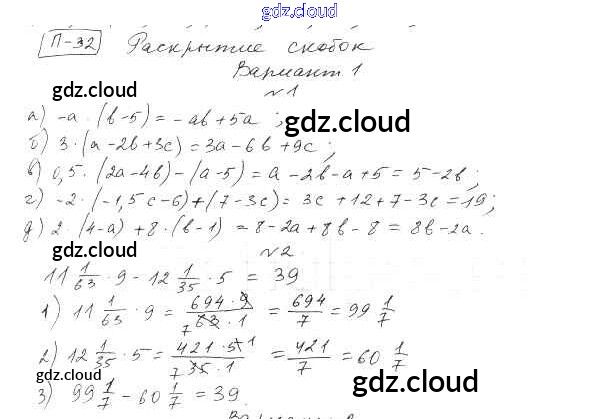 gdz.cloud
П-32 Раскрытие скобок
gdz.cloud
Вариант 1
№1
gdz.cloud
а) -а · (b-5) = -ab + 5a ;
gdz.cloud
б) 3 · (a - 2b + 3c) = 3a - 6b + 9c ;
в) 0,5 · (2a - 4b) - (a - 5) = a - 2b - a + 5 = 5 - 2b ;
г) -2 · (-1,5c - 6) + (7 - 3c) = 3c + 12 + 7 - 3c = 19 ;
д) 2 · (4-a) + 8 · (b-1) = 8 - 2a + 8b - 8 = 8b - 2a .
gdz.cloud
№2
11 1/63 · 9 - 12 1/35 · 5 = 39
gdz.cloud
1) 11 1/63 · 9 = 694 · 9 / 7 63 · 1 = 694/7 = 99 1/7
gdz.cloud
2) 12 1/35 · 5 = 421 · 5 1 / 7 35 · 1 = 421/7 = 60 1/7
gdz.cloud
3) 99 1/7 - 60 1/7 = 39 .
gdz.cloud